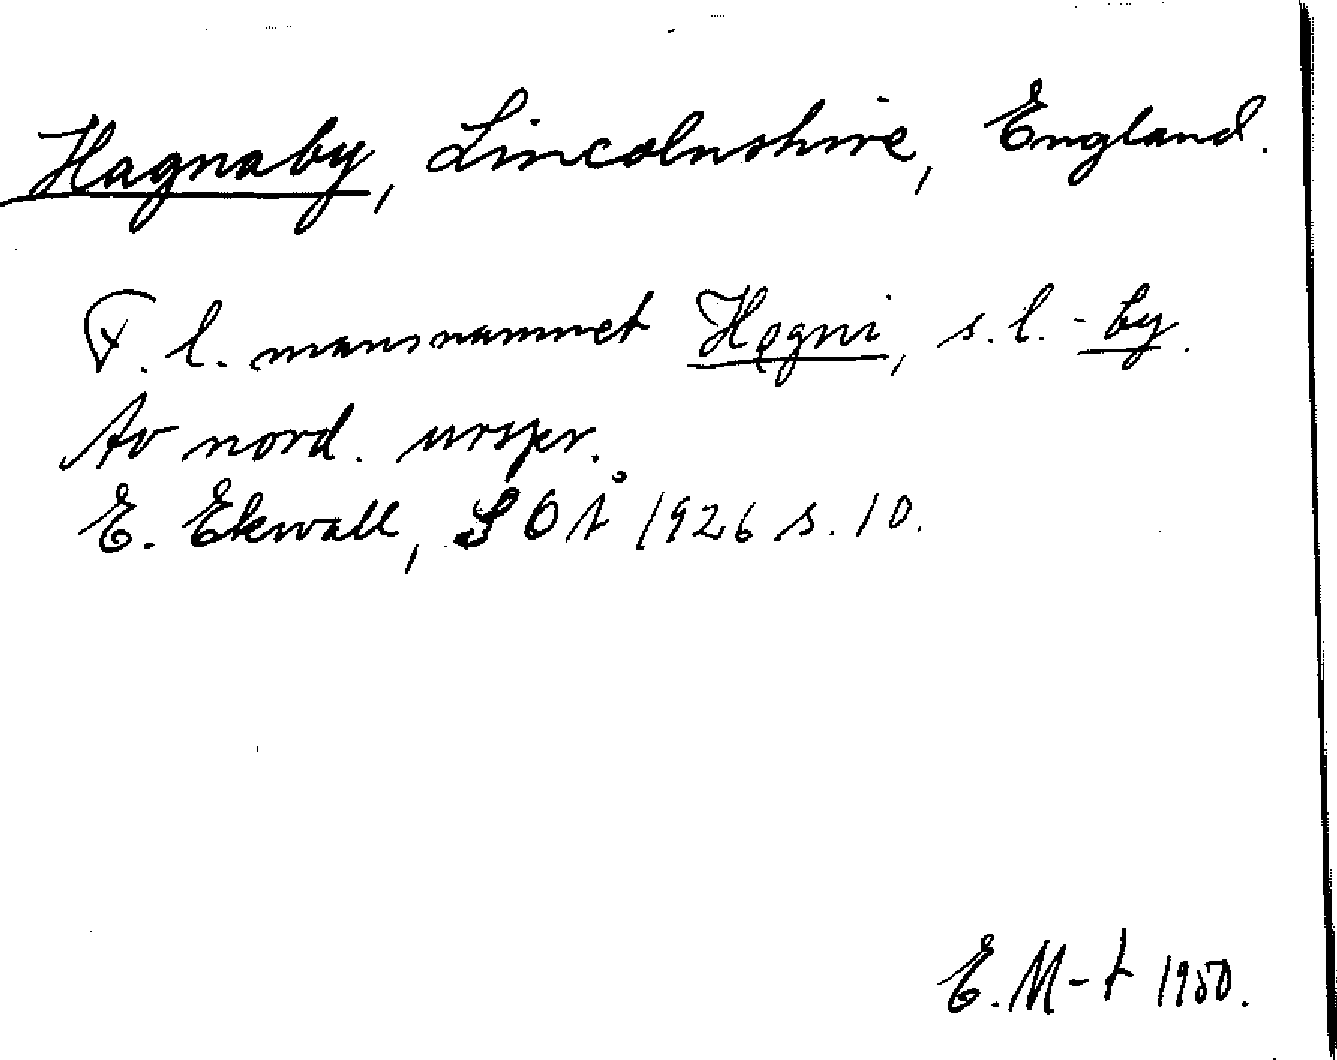 Hagnaby, Lincolnshire, England.
F. l. mansnamnet Hǫgni, s. l. - by.
Av nord. urspr.
E. Ekwall, SOÅ 1926 s. 10.
E. M-t 1950.